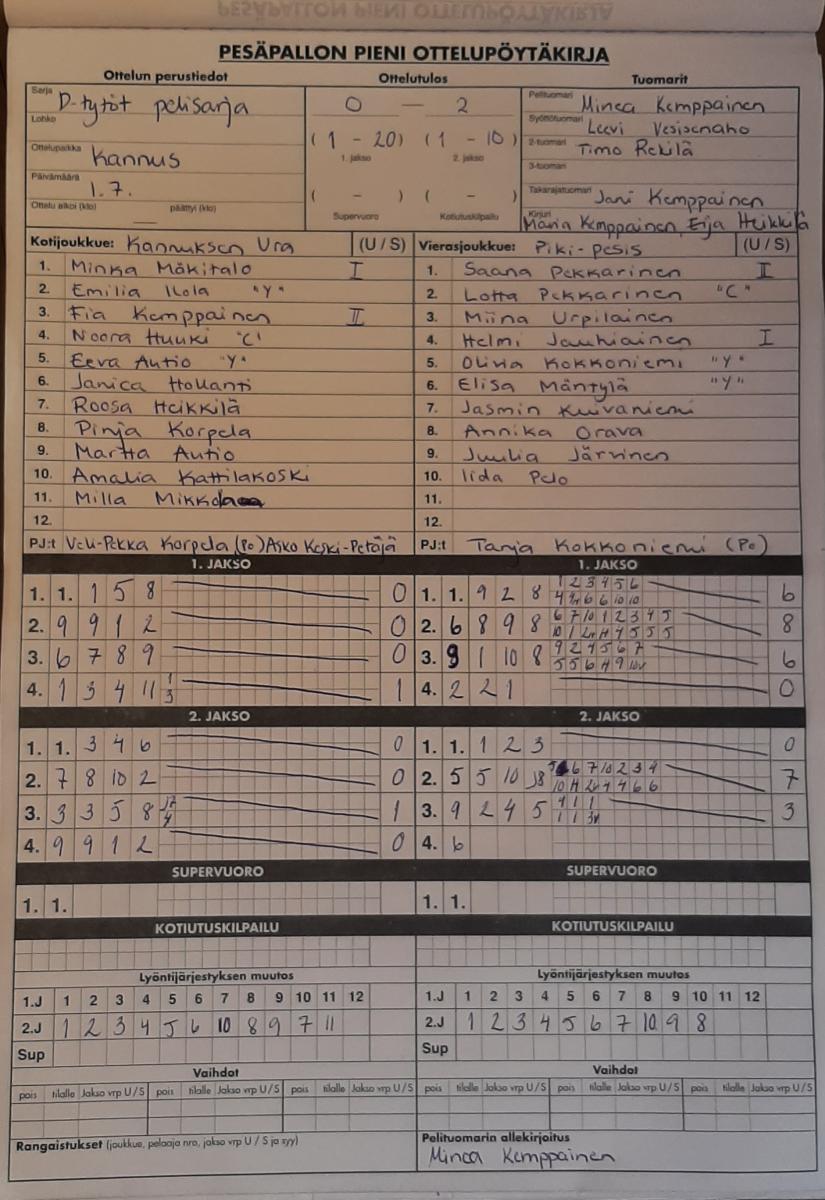 PESÄPALLON PIENI OTTELUPÖYTÄKIRJA
Ottelun perustiedot Ottelutulos Tuomarit
Sarja D-tytöt pelisarja
Lohko
Ottelupaikka Kannus
Päivämäärä 1.7.
Ottelu alkoi (klo) — päättyi (klo)
0 — 2
( 1 - 20 ) ( 1 - 10 )
1. jakso 2. jakso
( - ) ( - )
Supervuoro Kotiutuskilpailu
Pelituomari Minea Kemppainen
Syöttötuomari Leevi Vesisenaho
2-tuomari Timo Rekilä
3-tuomari
Takarajatuomari Jani Kemppainen
Kirjuri Maria Kemppainen, Eija Heikkilä
Kotijoukkue: Kannuksen Ura (U / S) Vierasjoukkue: Piki-pesis (U / S)
1. Minka Mäkitalo I 1. Saana Pekkarinen II
2. Emilia Ilola "Y" 2. Lotta Pekkarinen "C"
3. Fia Kemppainen II 3. Miina Urpilainen
4. Noora Huuki "C" 4. Helmi Jauhiainen I
5. Eeva Autio "Y" 5. Olivia Kokkoniemi "Y"
6. Janica Hollanti 6. Elisa Mäntylä "Y"
7. Roosa Heikkilä 7. Jasmin Kuivaniemi
8. Pinja Korpela 8. Annika Orava
9. Martta Autio 9. Juulia Järvinen
10. Amalia Kattilakoski 10. Iida Pelo
11. Milla 11.
12. 12.
PJ:t Veli-Pekka Korpela (Po) Asko Keski-Petäjä PJ:t Tanja Kokkoniemi (Po)
1. JAKSO 1. JAKSO
1. 1. 1 5 8 0 1. 1. 9 2 8 1 2 3 4 5 6 6
2. 9 9 1 2 0 2. 6 8 9 8 6 7 10 1 2 3 4 5 8
3. 6 7 8 9 0 3. 9 1 10 8 9 2 4 5 6 7 6
4. 1 3 4 11 1 3 1 4. 2 2 1 0
2. JAKSO 2. JAKSO
1. 1. 3 4 6 0 1. 1. 1 2 3 0
2. 7 8 10 2 0 2. 5 5 10 J8 6 7 10 2 3 4 7
3. 3 3 5 8 J2 4 1 3. 9 2 4 5 4 1 1 3
4. 9 9 1 2 0 4. 6
SUPERVUORO SUPERVUORO
1. 1. 1. 1.
KOTIUTUSKILPAILU KOTIUTUSKILPAILU
Lyöntijärjestyksen muutos Lyöntijärjestyksen muutos
1.J 1 2 3 4 5 6 7 8 9 10 11 12 1.J 1 2 3 4 5 6 7 8 9 10 11 12
2.J 1 2 3 4 5 6 10 8 9 7 11 2.J 1 2 3 4 5 6 7 10 9 8
Sup Sup
Vaihdot Vaihdot
pois tilalle Jakso vrp U / S pois tilalle Jakso vrp U / S pois tilalle Jakso vrp U / S pois tilalle Jakso vrp U / S pois tilalle Jakso vrp U / S pois tilalle Jakso vrp U / S
Rangaistukset (joukkue, pelaaja nro, jakso vrp U / S ja syy) Pelituomarin allekirjoitus
Minea Kemppainen